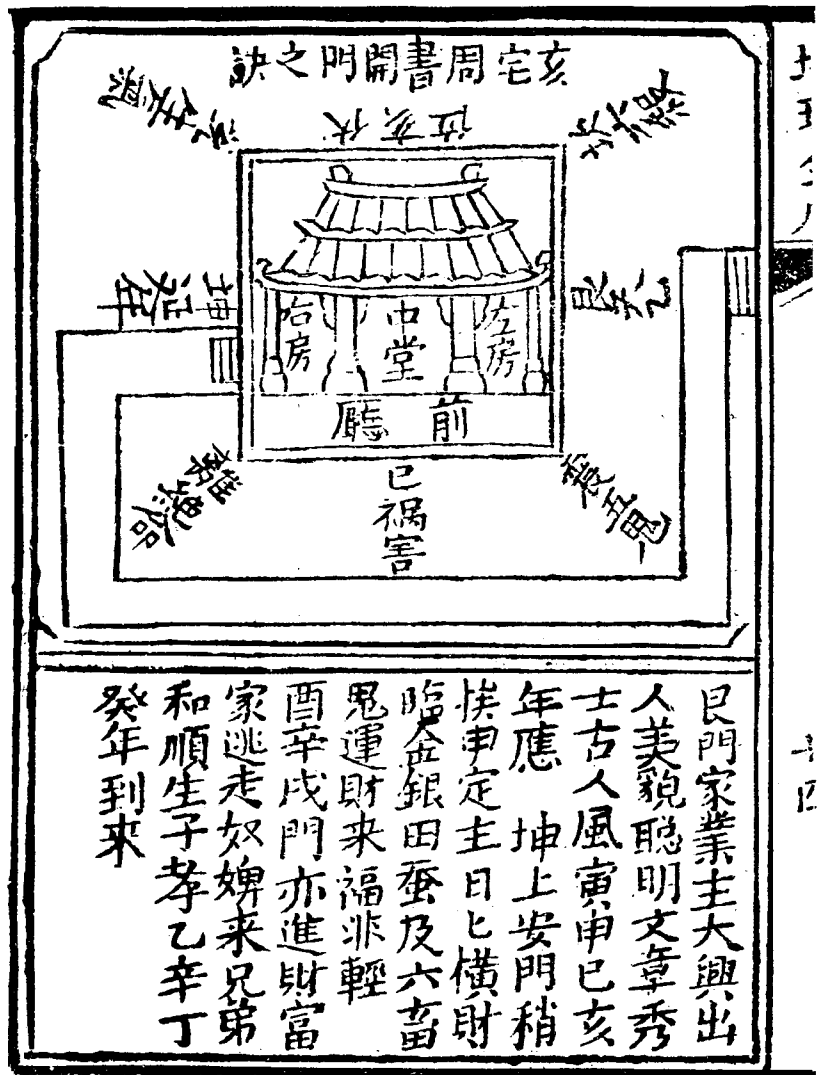 亥宅周書開門之訣
位亥伏
艮天乙
坤延年
左房
中堂
右房
前廳
巳禍害
五鬼
艮門家業主大興出
人美貌聰明文章秀
士古人風寅申巳亥
年應　坤上安門稍
定主日匕橫財
臨金銀田蚕及六畜
鬼運財来福非輕
酉辛戌門亦進財富
家逃走奴婢来兄弟
和順生子孝乙辛丁
癸年到来